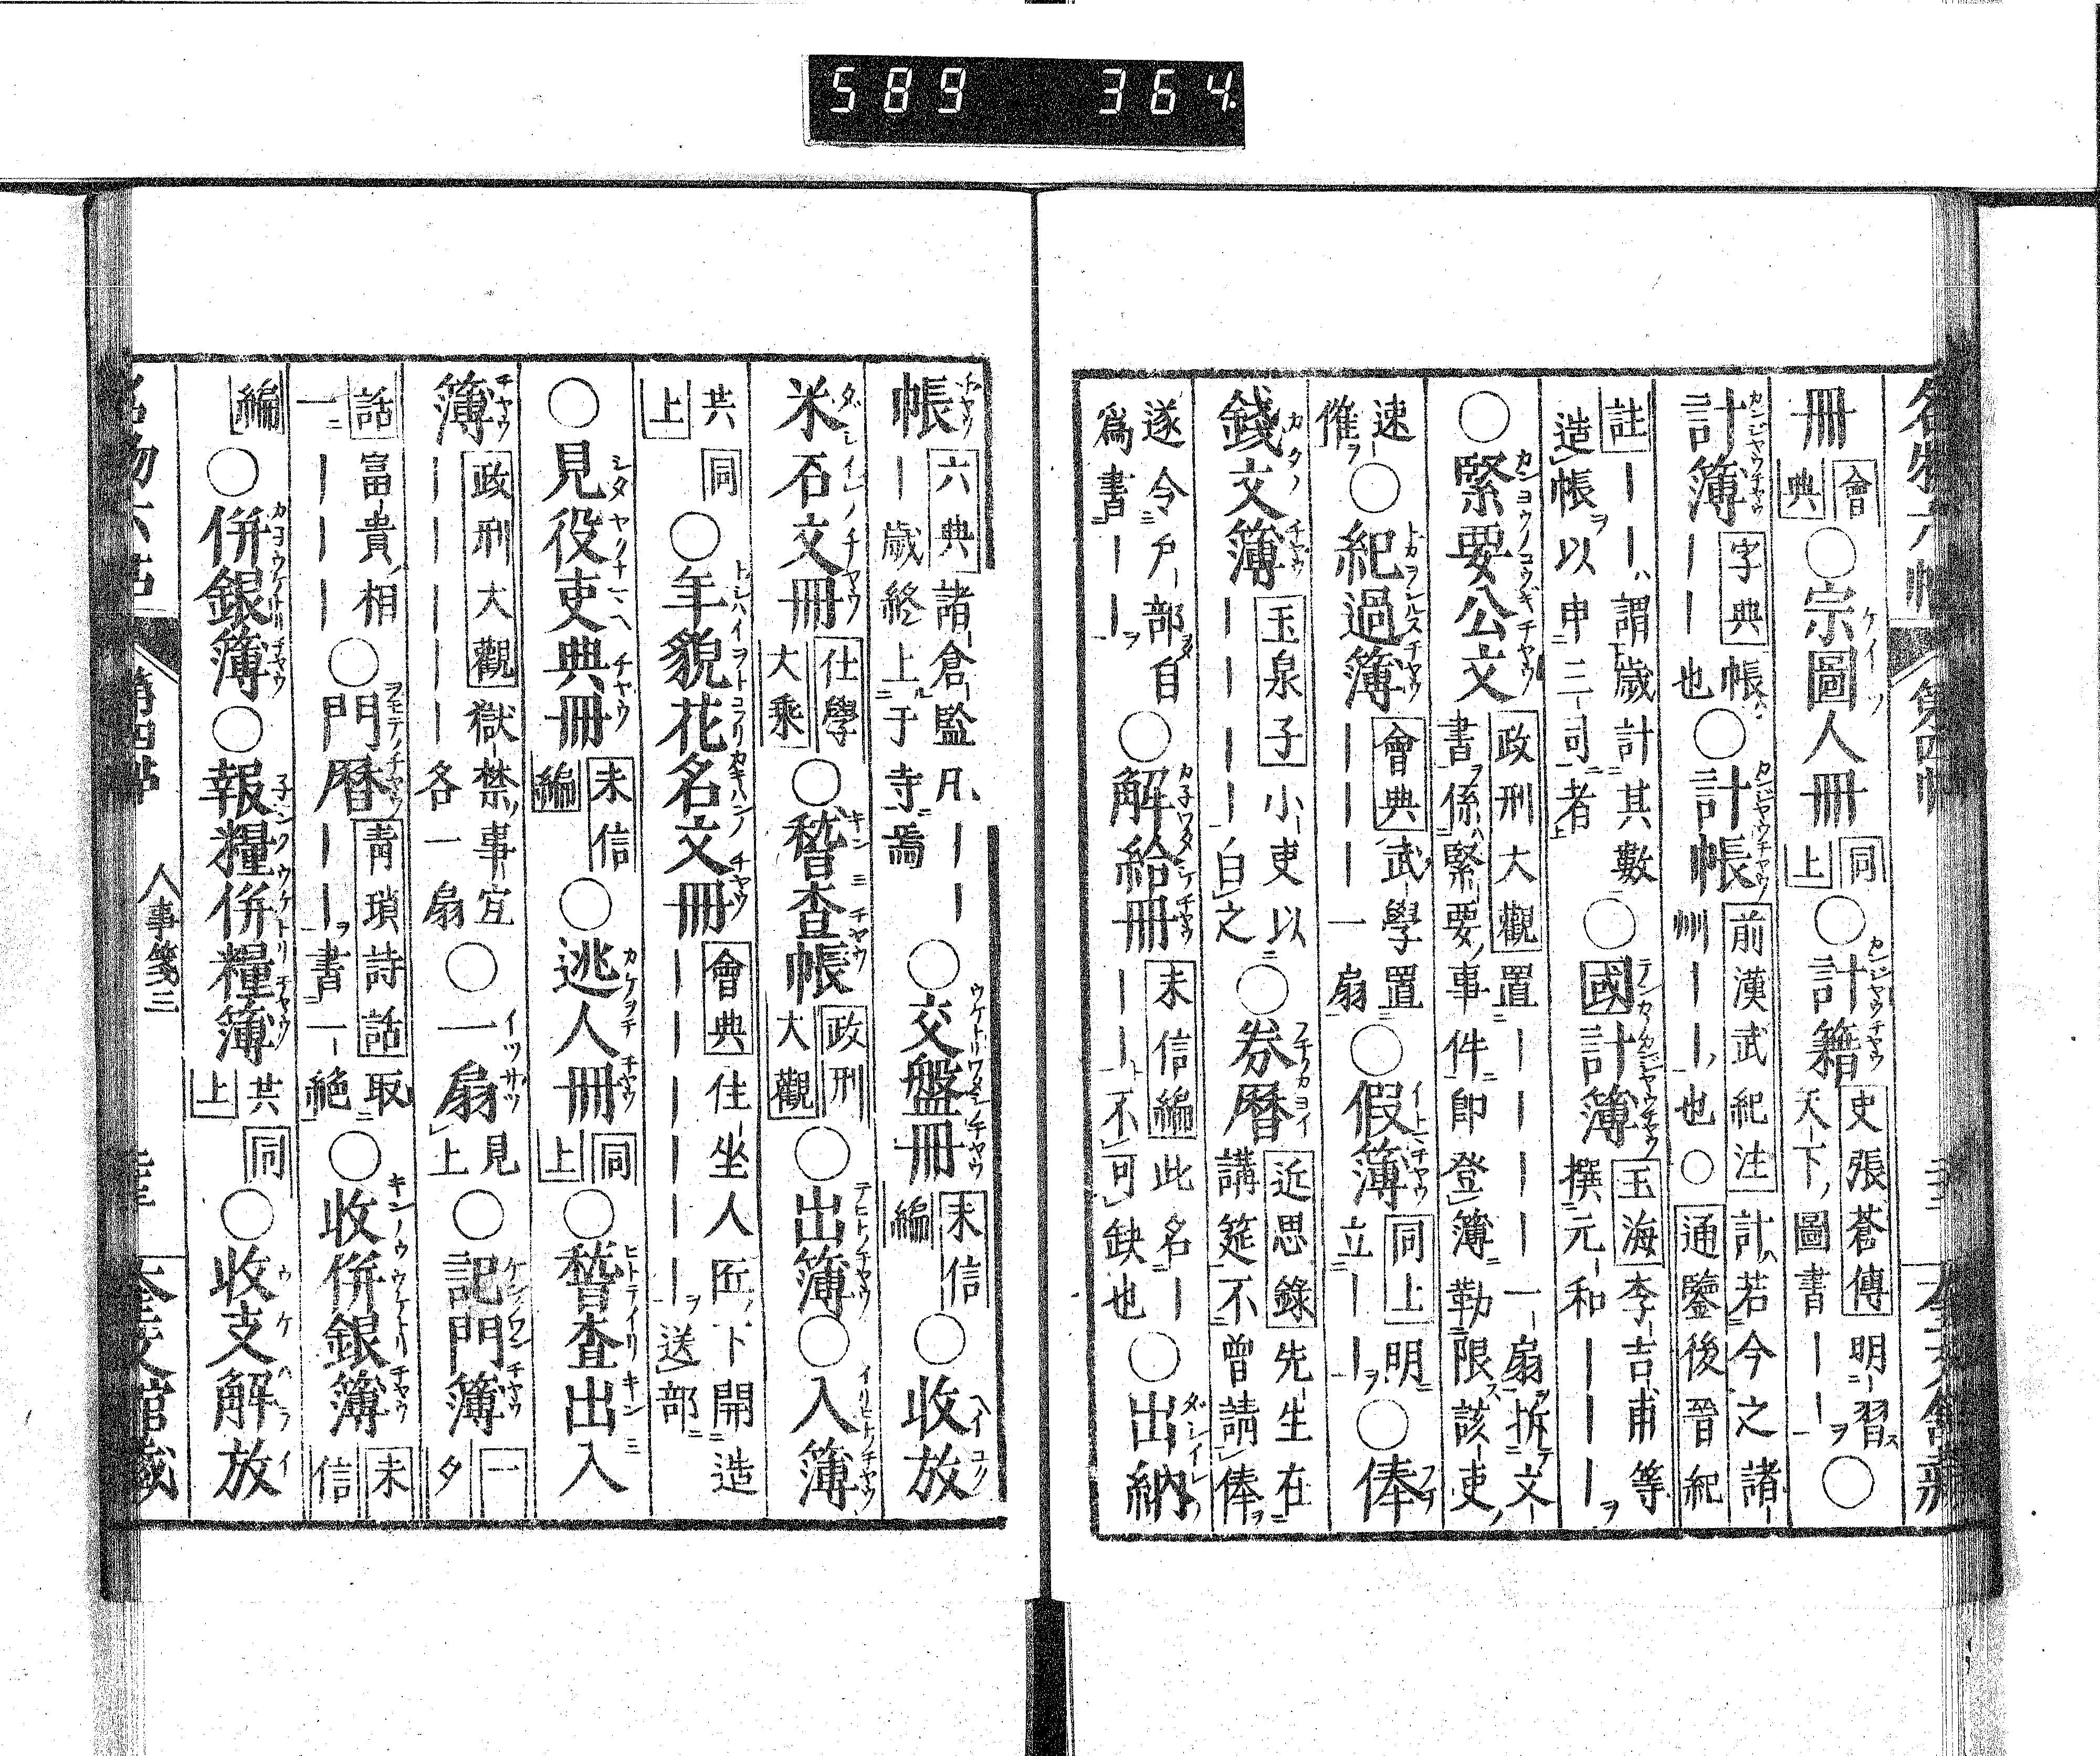 589 364
名物六帖 第四帖
冊 會典 ○宗圖人冊 同上 ○計籍 史張蒼傳 明習天下圖書｜｜ ○
計簿 字典 帳｜｜也 ○計帳 前漢武紀注 計若今之諸州｜｜也 ○ 通鑒後晉紀
註 ｜｜謂歲計其數造帳以申三司者 ○國計簿 玉海 李吉甫等撰元和｜｜｜
○緊要公文 政刑大觀 置｜｜｜｜一扇拆文書係緊要事件即登簿勒限該吏
速催 ○紀過簿 會典 武學置｜｜｜一扇 ○假簿 同上 明立｜｜ ○俸
錢文簿 玉泉子 小吏以｜｜｜｜白之 ○券曆 近思錄 先生在講筵不曾請俸
遂令戶部自爲書｜｜ ○解給冊 未信編 此名｜｜｜不可缺也 ○出納
帳 六典 諸倉監凡｜｜｜歲終上于寺焉 ○交盤冊 未信編 ○收放
米石文冊 仕學大乘 ○稽查帳 政刑大觀 ○出簿 ○入簿
共同上 ○年貌花名文冊 會典 住坐人匠下開造｜｜｜｜｜｜送部
○見役吏典冊 未信編 ○逃人冊 同上 ○稽查出入
簿 政刑大觀 獄禁事宜｜｜｜｜｜各一扇 ○一扇 見上 ○記門簿 一夕
話 富貴相一｜｜｜ ○門曆 青瑣詩話 取｜｜書一絕 ○收併銀簿 未信
編 ○併銀簿 ○報糧併糧簿 共同上 ○收支解放
第四帖 人事箋三